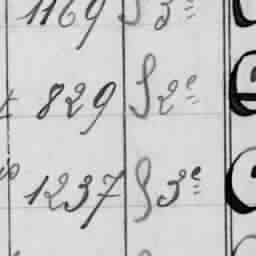 1169 § 3e
829 § 2e
1237 § 3e